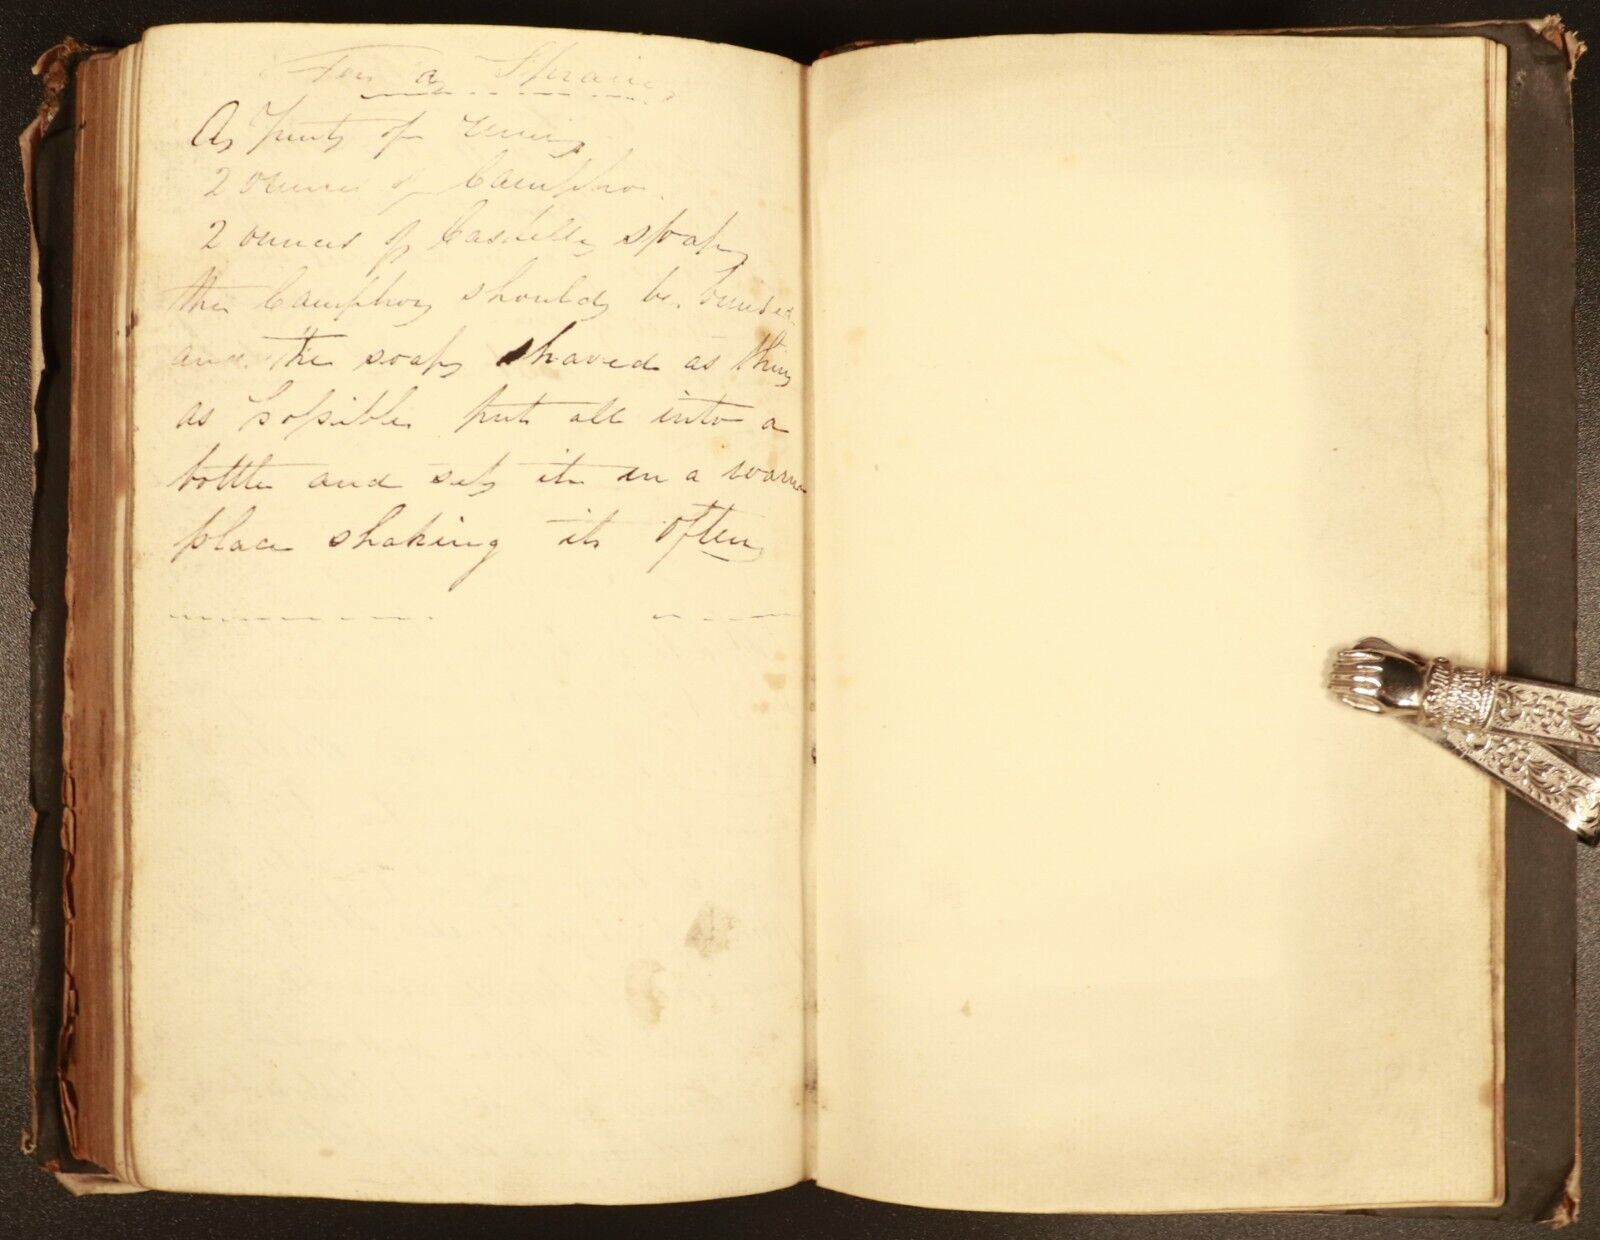 For a Sprain
A pint of
2 ounces of Camphor
2 ounces of Castille soap
the Camphor should be bruised
and the soap shaved as thin
as Possible put all into a
bottle and set it in a warm
place shaking it often